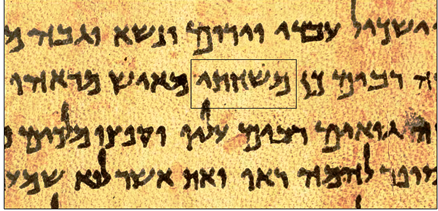 ישכיל עבדי וירום ונשא וגבה
רבים כן משחתי מאיש מראהו
גואים רבים עליו וקפצו מלכים
להמה ראו ואת אשר לוא